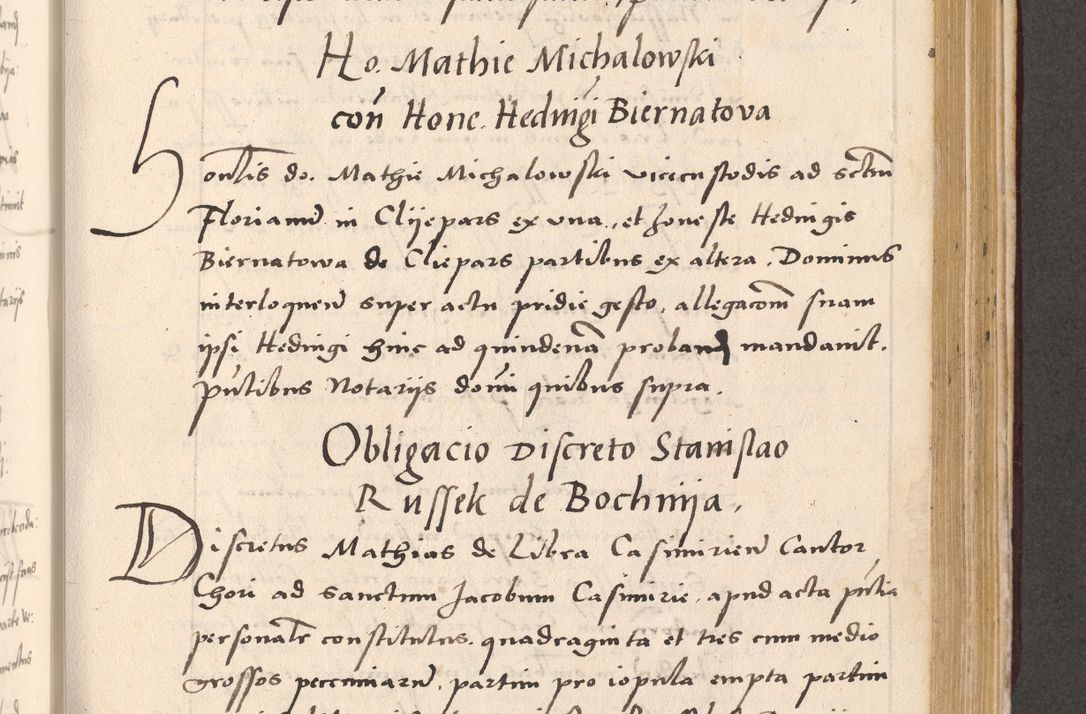 Ho. Mathie Michalowski
con̄ Hone. Hedvigi Biernatova
Honlis do. Mathie Michalowski vicecustodis ad sctūm
Florianū in Clijepars ex vna, et honeste Hedvigis
Biernatowa de Cliepars partibus ex altera. Dominus
interloquen̄ super actu pridie gesto, allegacōm suam
ipsi Hedvigi hinc ad quindenā proband mandavit.
Pn̄tibus Notarijs domi quibus supra.
Obligacio Discreto Stanislao
Russek de Bochnija.
Discretus Mathias de Libra Casimirien̄ Cantor
Chori ad sanctum Jacobum Casimirie, apud acta pn̄tia
personalr̄ constitutus, quadraginta et tres cum medio
grossos pecuniarū, partim pro iopula empta partim